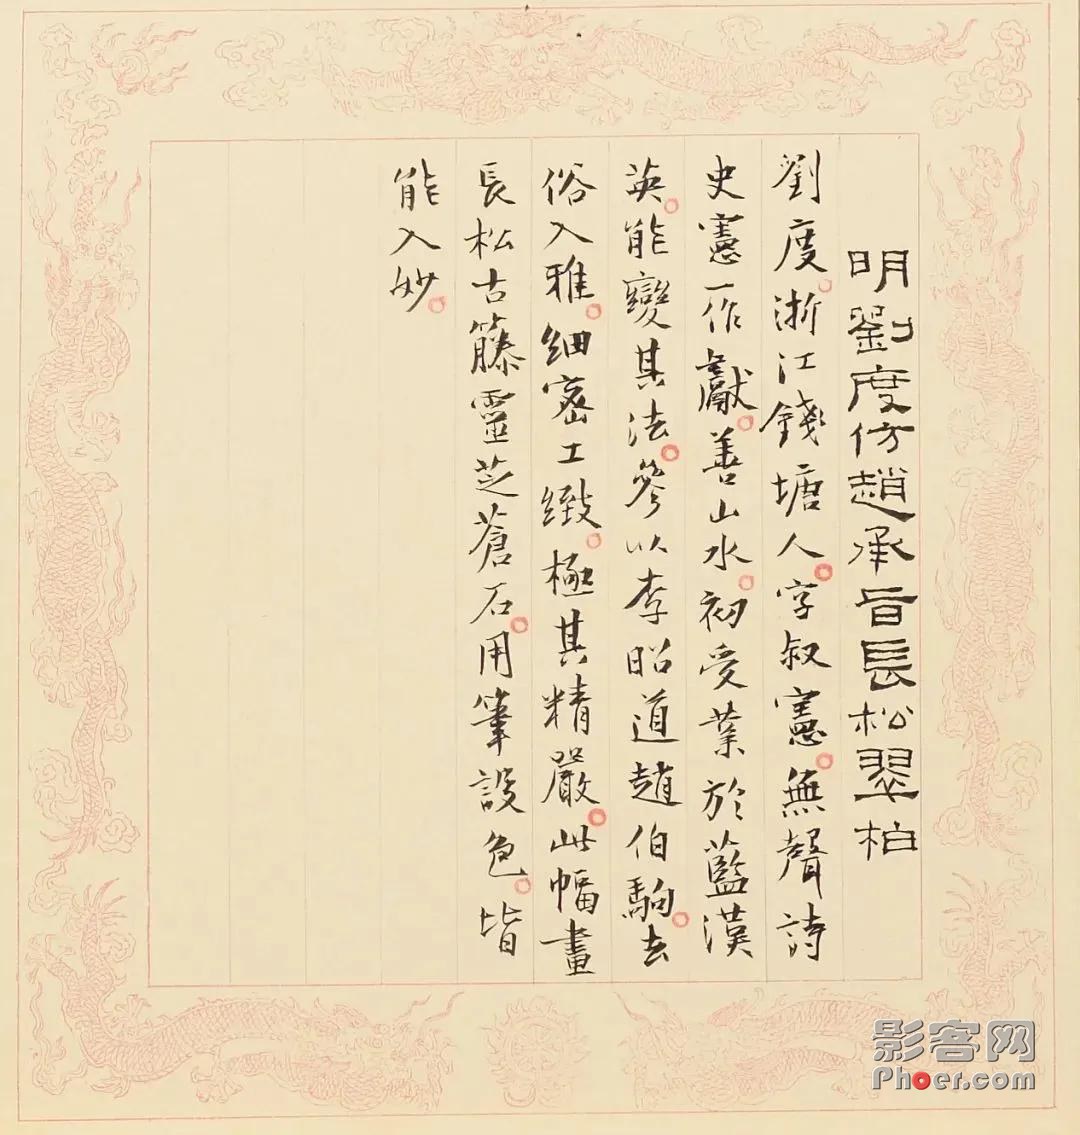 明劉度仿趙承旨長松翠柏
劉度。浙江錢塘人。字叔憲。無聲詩
史憲一作獻。善山水。初受業於藍漢
英。能變其法。參以李昭道趙伯駒。去
俗入雅。細密工緻。極其精嚴。此幅畫
長松古籐靈芝蒼石。用筆設色。皆
能入妙。
影客网
Phoer.com